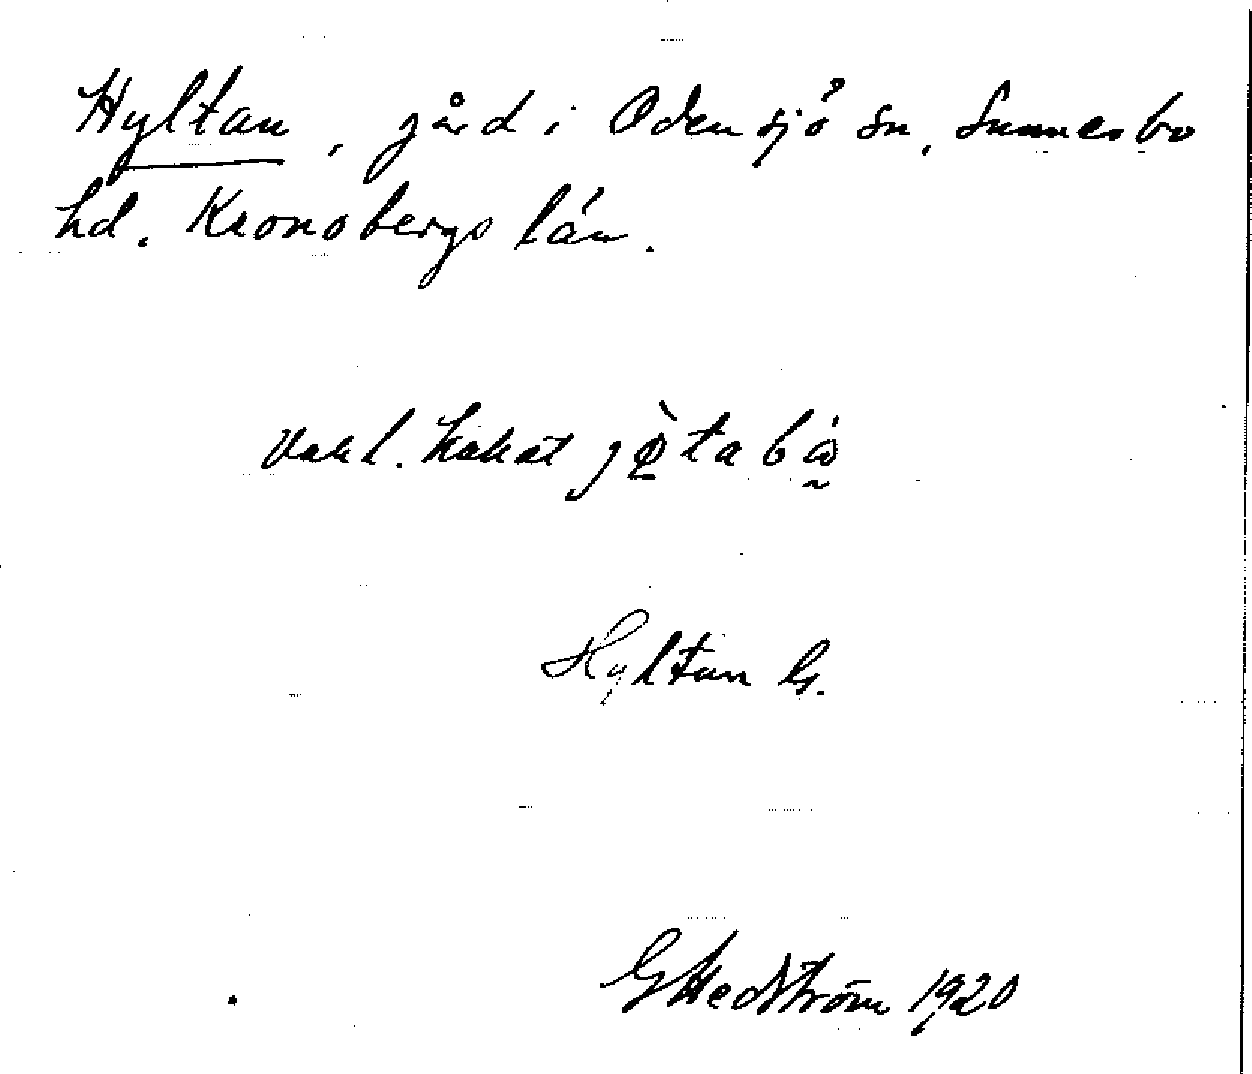 Hyltan, gård i Odensjö sn, Sunnerbo
hd. Kronobergs län.
kallat
Hyltan G.
G Hedström 1920